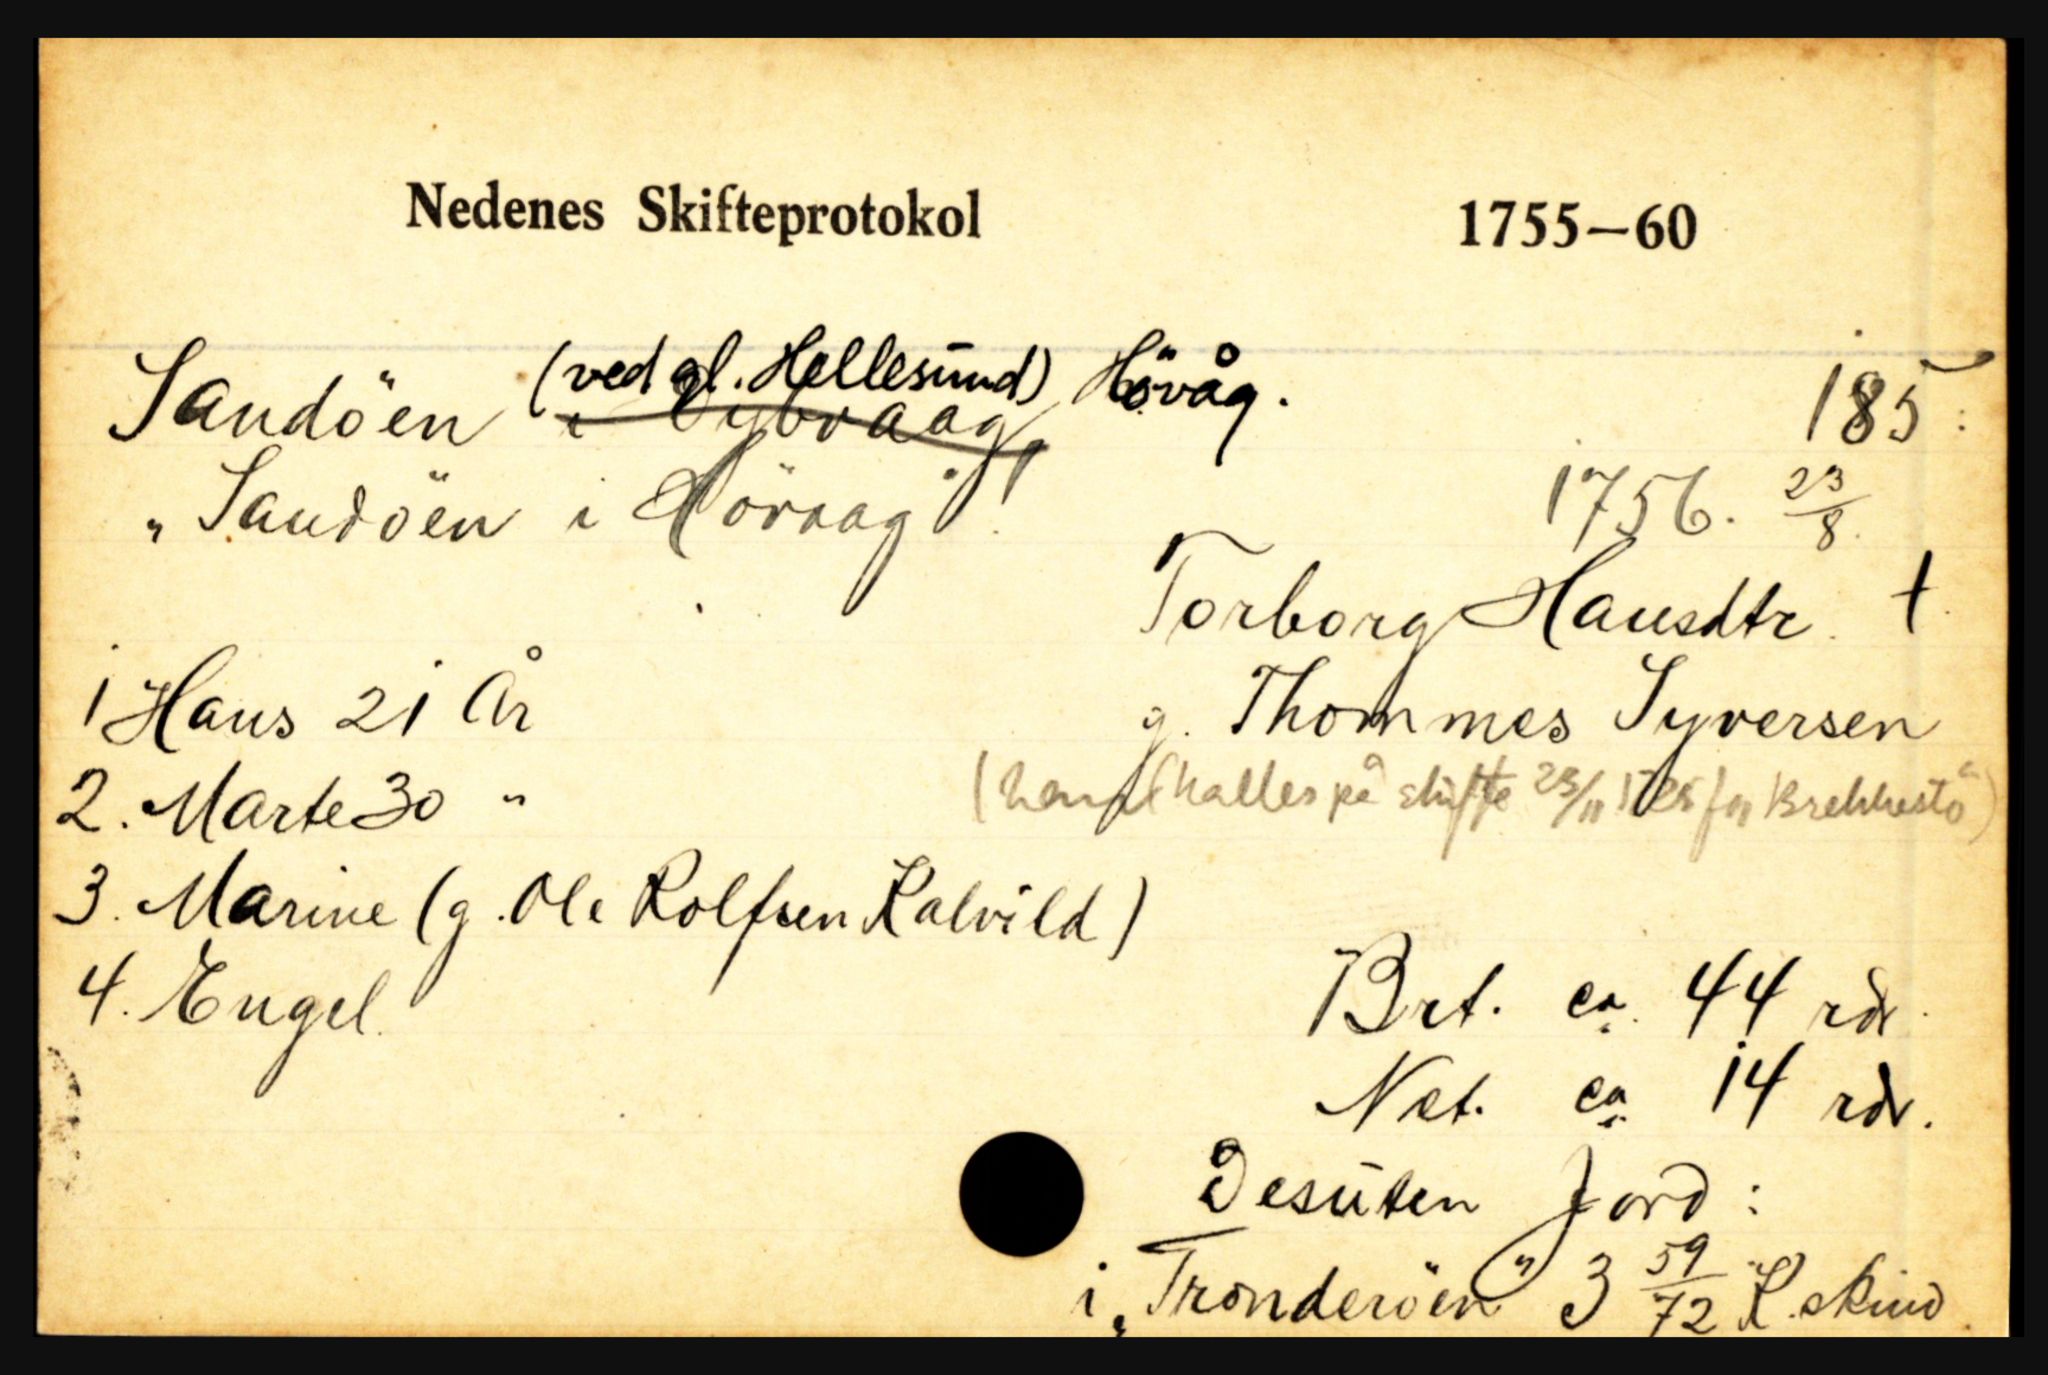 Nedenes Skifteprotokol 1755—60
Sandöen (ved gl. Hellesund) Hövåg. 185
i Dybvaag
"Sandöen i Hövaag" 1756. 23/8.
Torborg Hansdtr. †
1 Hans 21 År g. Thommes Syversen
2. Marte 30 " ( kalles på skifte 23/11 f Brekkestö)
3. Marine (g. Ole Rolfsen Kalvild)
4. Engel.
Brt. ca. 44 rdr.
Net. ca. 14 rdr.
Desuten Jord:
i "Tronderöen" 3 59/72 K. skind